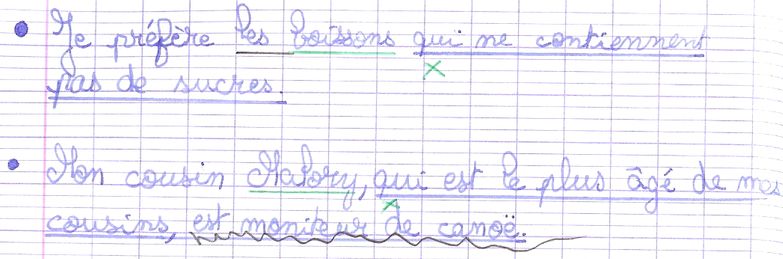 • Je préfère les boissons qui ne contiennent
pas de sucres.
• Mon cousin Malory, qui est le plus âgé de mes
cousins, est moniteur de canoë.